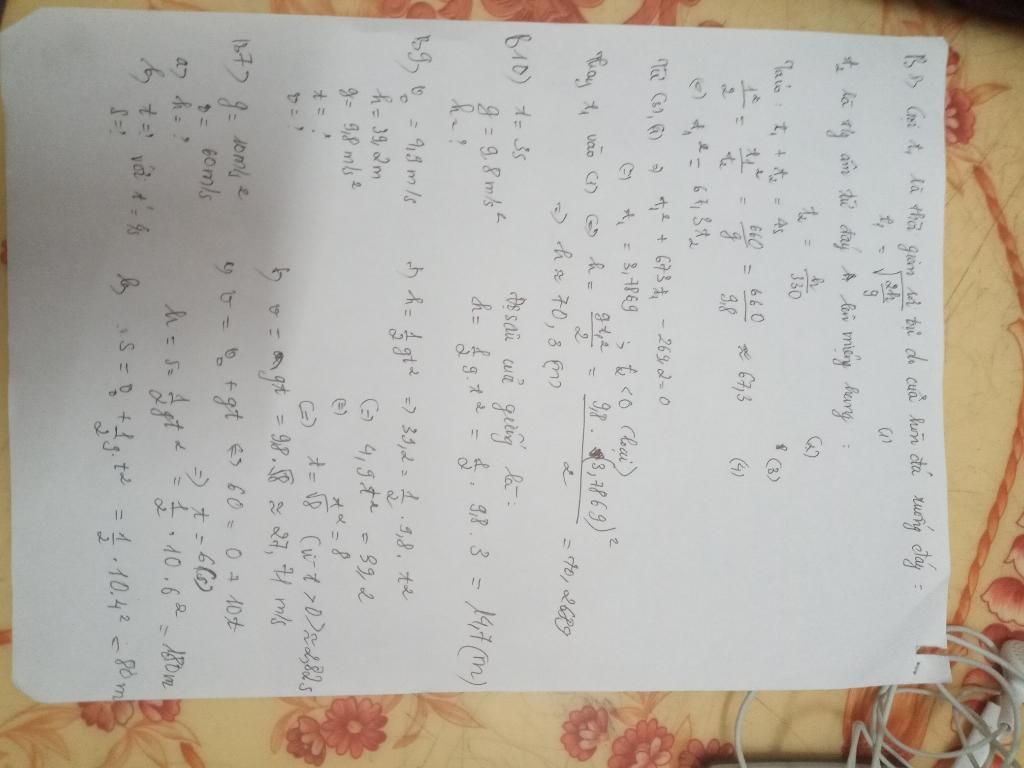 B 8) Gọi t₁ là thời gian rơi tự do của hòn đá xuống đáy :
t₁ = √(2h/g) (1)
t₂ là tg âm từ đáy lên miệng hang :
t₂ = h/330 (2)
Ta có : t₁ + t₂ = 4s (3)
t₁²/t₂ = 660/g = 660/9,8 ≈ 67,3 (4)
(=) t₁² = 67,3t₂
Từ (3), (4) => t₁² + 67,3t₁ - 269,2 = 0
(=) t₁ = 3,7869 ; t₂ < 0 (loại)
Thay t₁ vào (1) (=) h = gt₁²/2 = 9,8 . (3,7869)²/2 = 70,2689
=) h ≈ 70,3 (m)
B10) t = 3s
g = 9,8 m/s²
h = ?
Độ sâu của giếng là :
h = 1/2 g.t² = 1/2 . 9,8 . 3 = 14,7 (m)
B9) v₀ = 9,9 m/s
h = 39,2m
g = 9,8 m/s²
t = ?
v = ?
h = 1/2 gt² => 39,2 = 1/2 . 9,8 . t²
(=) 4,9t² = 39,2
(=) t² = 8
(=) t = √8 (vì t > 0) ≈ 2,82s
v = gt = 9,8 . √8 ≈ 27,71 m/s
B7) g = 10m/s²
v = 60m/s
a) h = ?
b) t = ? với t' = 4s
s = ?
a) v = v₀ + gt (=) 60 = 0 + 10t
=) t = 6(s)
h = s = 1/2 gt² = 1/2 . 10 . 6² = 180m
b) s = v₀ + 1/2 g.t² = 1/2 . 10 . 4² = 80m